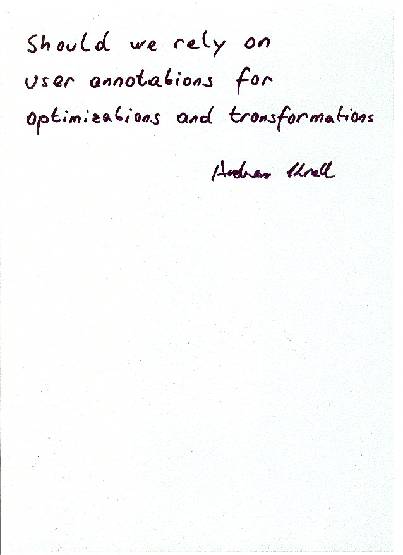 Should we rely on
user annotations for
optimizations and transformations
Andreas Krall